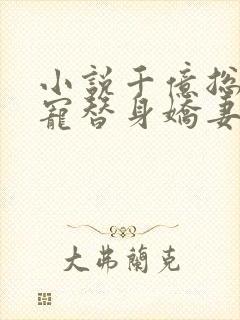 小說千億總
寵替身嬌妻
大弗蘭克